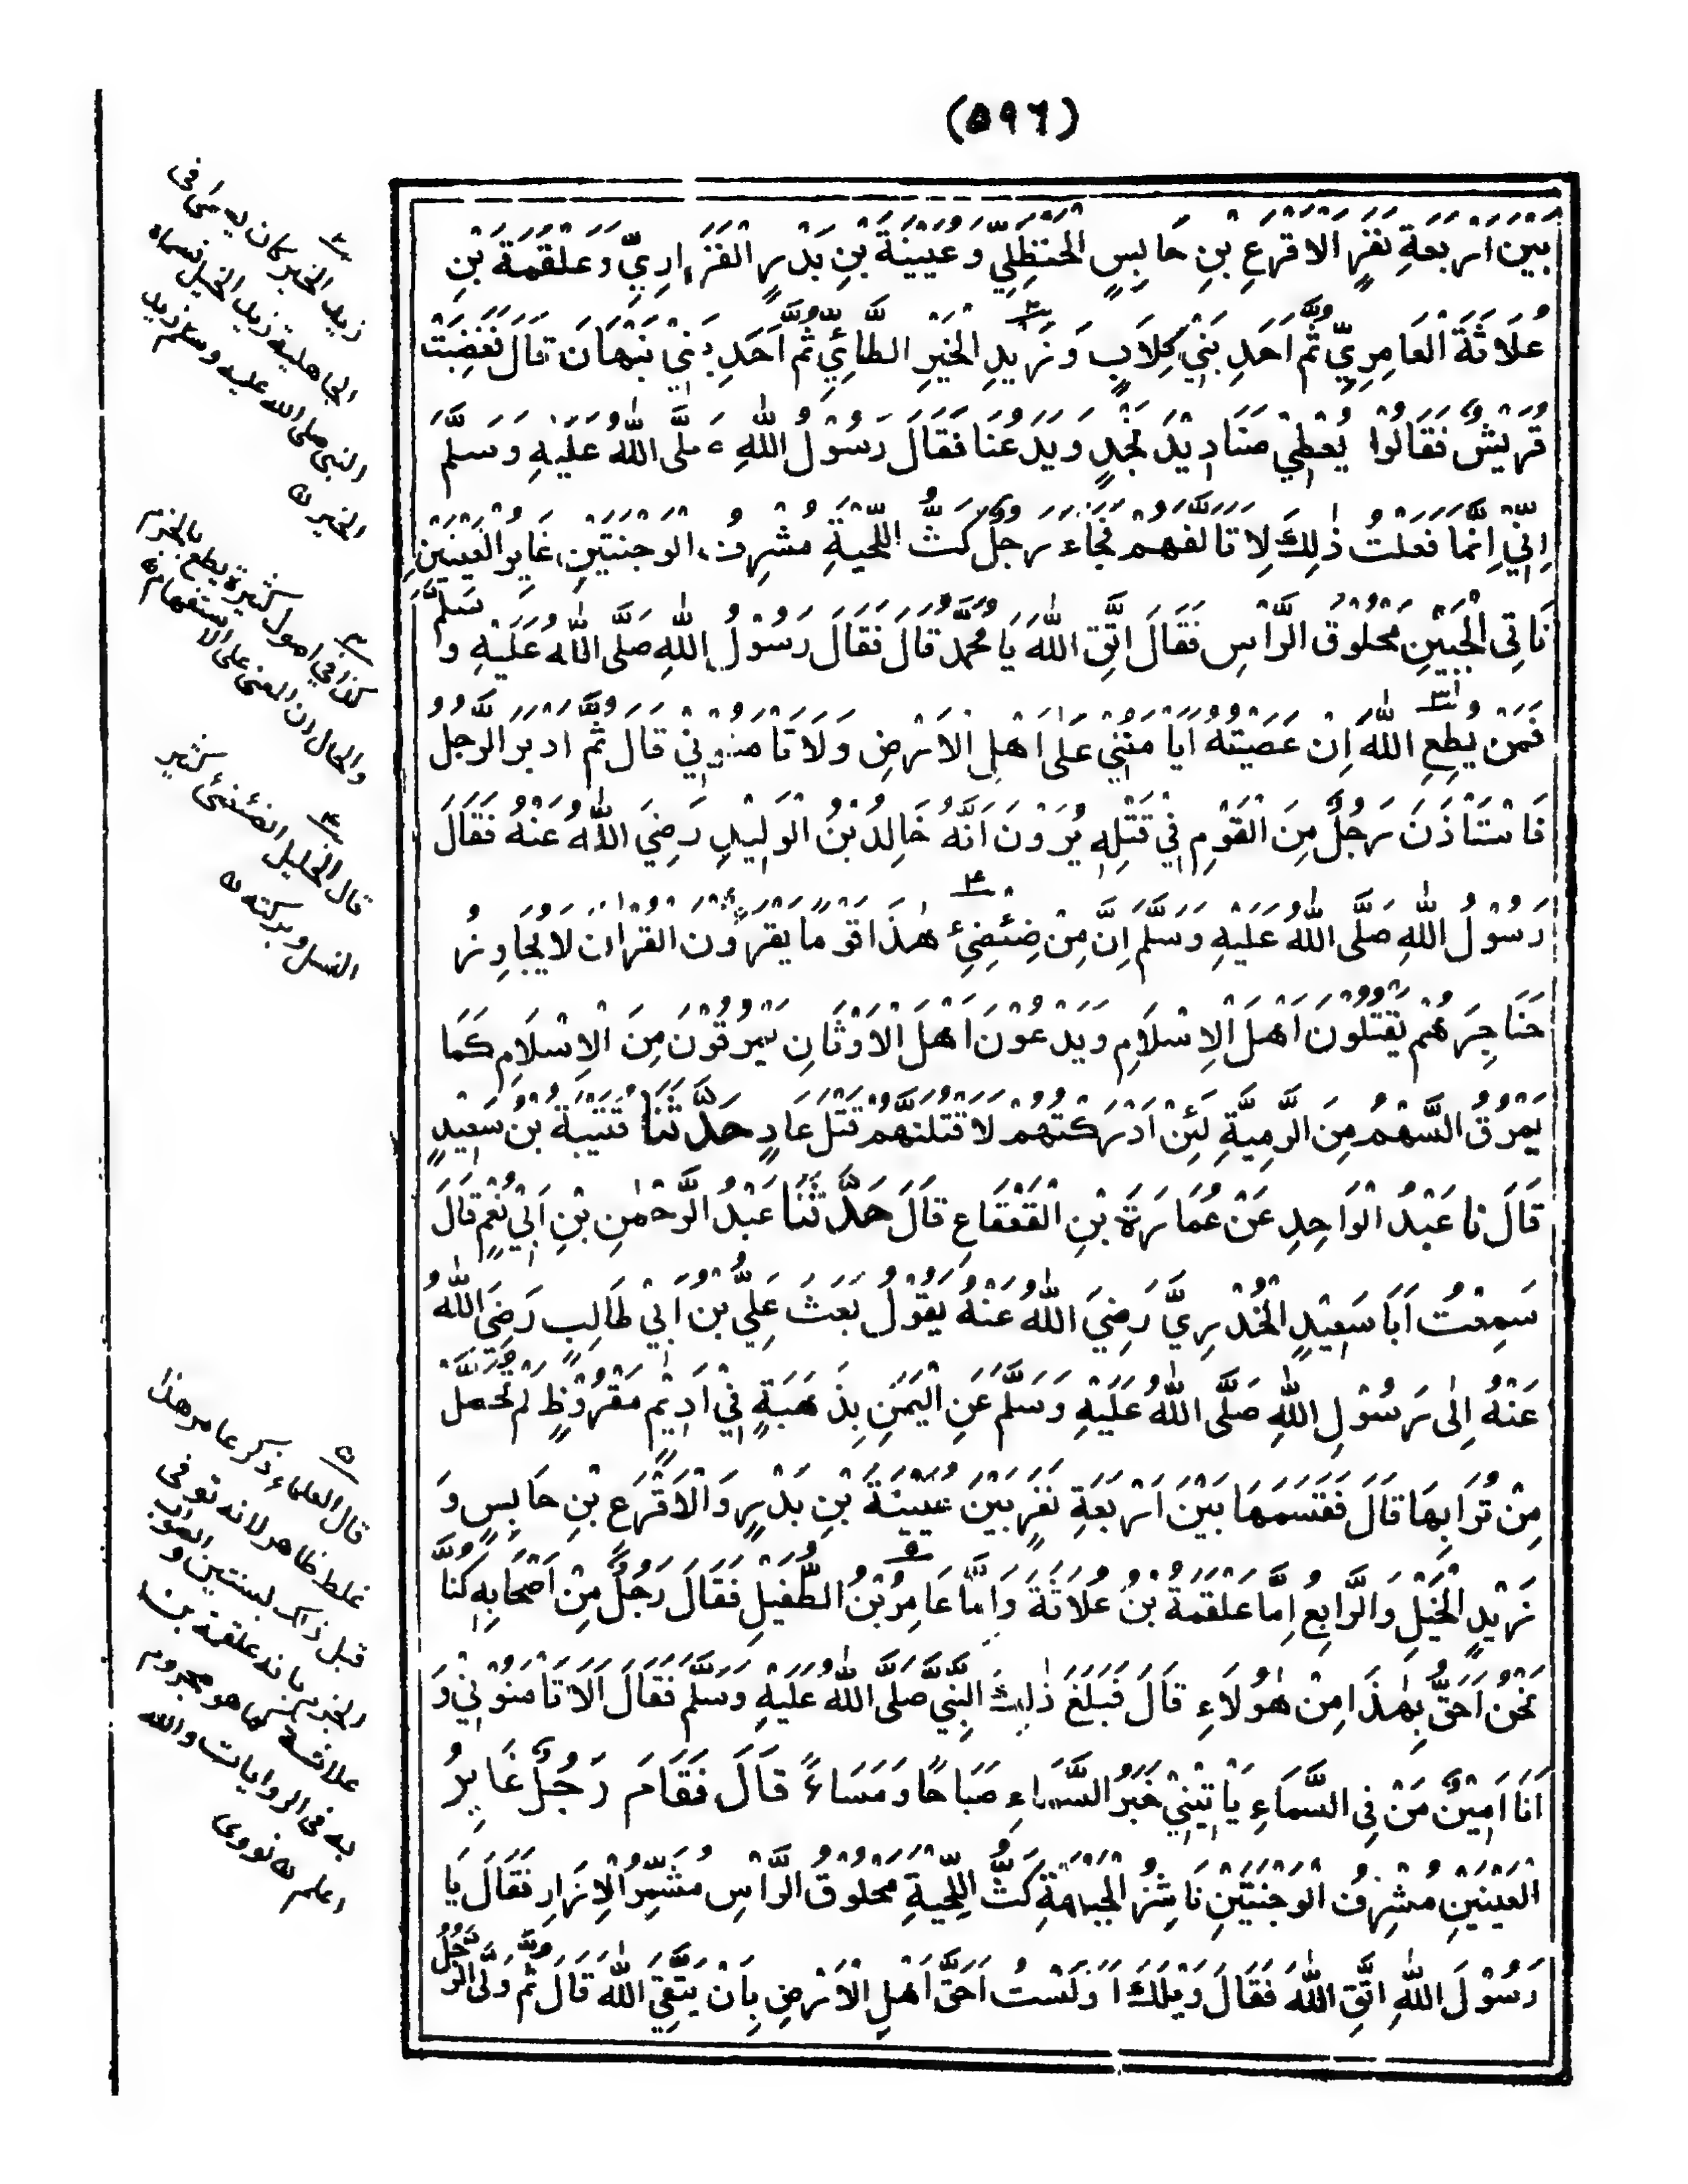 (٥٩٦)
بَيْنَ اَرْبَعَةِ نَفَرٍ الْاَقْرَعِ بْنِ حَابِسٍ الْحَنْظَلِيِّ وَعُيَيْنَةَ بْنِ بَدْرٍ الْفَزَارِيِّ وَعَلْقَمَةَ بْنِ
عُلَاثَةَ الْعَامِرِيِّ ثُمَّ اَحَدِ بَنِيْ كِلَابٍ وَزَيْدِ الْخَيْرِ الطَّائِيِّ ثُمَّ اَحَدِ بَنِيْ نَبْهَانَ قَالَ فَغَضِبَتْ
قُرَيْشٌ فَقَالُوْا يُعْطِيْ صَنَادِيْدَ نَجْدٍ وَيَدَعُنَا فَقَالَ رَسُوْلُ اللّٰهِ صَلَّى اللّٰهُ عَلَيْهِ وَسَلَّمَ
اِنِّيْ اِنَّمَا فَعَلْتُ ذٰلِكَ لِاَتَاَلَّفَهُمْ فَجَاءَ رَجُلٌ كَثُّ اللِّحْيَةِ مُشْرِفُ الْوَجْنَتَيْنِ غَايِرُ الْعَيْنَيْنِ
نَاتِى الْجَبِيْنِ مَحْلُوْقُ الرَّاْسِ فَقَالَ اتَّقِ اللّٰهَ يَا مُحَمَّدُ قَالَ فَقَالَ رَسُوْلُ اللّٰهِ صَلَّى اللّٰهُ عَلَيْهِ وَسَلَّمَ
فَمَنْ يُطِعِ اللّٰهَ اِنْ عَصَيْتُهُ اَيَاْمَنُنِيْ عَلٰى اَهْلِ الْاَرْضِ وَلَا تَاْمَنُوْنِيْ قَالَ ثُمَّ اَدْبَرَ الرَّجُلُ
فَاسْتَاْذَنَ رَجُلٌ مِنَ الْقَوْمِ فِيْ قَتْلِهِ يُرَوْنَ اَنَّهُ خَالِدُ بْنُ الْوَلِيْدِ رَضِيَ اللّٰهُ عَنْهُ فَقَالَ
رَسُوْلُ اللّٰهِ صَلَّى اللّٰهُ عَلَيْهِ وَسَلَّمَ اِنَّ مِنْ ضِئْضِئِ هٰذَا قَوْمًا يَقْرَؤُنَ الْقُرْاٰنَ لَا يُجَاوِزُ
حَنَاجِرَهُمْ يَقْتُلُوْنَ اَهْلَ الْاِسْلَامِ وَيَدَعُوْنَ اَهْلَ الْاَوْثَانِ يَمْرُقُوْنَ مِنَ الْاِسْلَامِ كَمَا
يَمْرُقُ السَّهْمُ مِنَ الرَّمِيَّةِ لَئِنْ اَدْرَكْتُهُمْ لَاَقْتُلَنَّهُمْ قَتْلَ عَادٍ حَدَّثَنَا قُتَيْبَةُ بْنُ سَعِيْدٍ
قَالَ نَا عَبْدُ الْوَاحِدِ عَنْ عُمَارَةَ بْنِ الْقَعْقَاعِ قَالَ حَدَّثَنَا عَبْدُ الرَّحْمٰنِ بْنِ اَبِيْ نُعْمٍ قَالَ
سَمِعْتُ اَبَا سَعِيْدٍ الْخُدْرِيَّ رَضِيَ اللّٰهُ عَنْهُ يَقُوْلُ بَعَثَ عَلِيُّ بْنُ اَبِيْ طَالِبٍ رَضِيَ اللّٰهُ
عَنْهُ اِلٰى رَسُوْلِ اللّٰهِ صَلَّى اللّٰهُ عَلَيْهِ وَسَلَّمَ عَنِ الْيَمَنِ بِذَهَبَةٍ فِيْ اَدِيْمٍ مَقْرُوْظٍ لَمْ تُحَصَّلْ
مِنْ تُرَابِهَا قَالَ فَقَسَمَهَا بَيْنَ اَرْبَعَةِ نَفَرٍ بَيْنَ عُيَيْنَةَ بْنِ بَدْرٍ وَالْاَقْرَعِ بْنِ حَابِسٍ وَ
زَيْدِ الْخَيْلِ وَالرَّابِعُ اِمَّا عَلْقَمَةُ بْنُ عُلَاثَةَ وَاِمَّا عَامِرُ بْنُ الطُّفَيْلِ فَقَالَ رَجُلٌ مِنْ اَصْحَابِهِ كُنَّا
نَحْنُ اَحَقَّ بِهٰذَا مِنْ هٰؤُلَاءِ قَالَ فَبَلَغَ ذٰلِكَ النَّبِيَّ صَلَّى اللّٰهُ عَلَيْهِ وَسَلَّمَ فَقَالَ اَلَا تَاْمَنُوْنِيْ وَ
اَنَا اَمِيْنُ مَنْ فِى السَّمَاءِ يَاْتِيْنِيْ خَبَرُ السَّمَاءِ صَبَاحًا وَمَسَاءً قَالَ فَقَامَ رَجُلٌ غَايِرُ
الْعَيْنَيْنِ مُشْرِفُ الْوَجْنَتَيْنِ نَاشِزُ الْجَبْهَةِ كَثُّ اللِّحْيَةِ مَحْلُوْقُ الرَّاْسِ مُشَمَّرُ الْاِزَارِ فَقَالَ يَا
رَسُوْلَ اللّٰهِ اتَّقِ اللّٰهَ فَقَالَ وَيْلَكَ اَوَلَسْتُ اَحَقَّ اَهْلِ الْاَرْضِ بِاَنْ يَتَّقِيَ اللّٰهَ قَالَ ثُمَّ وَلَّى الرَّجُلُ
٢
زيد الخير كان يه فى
الجاهلية زيد الخيل فسماه
النبي صلى الله عليه وسلم زيد
الخير ١٢
٣
كذا في اصول كثيرة يطع بالجزم
والحال ان المعنى على الاستفهام ١٢
٤
قال الخليل الضئضئ كثير
النسل وبركته ١٢
٥
قال العلماء ذكر عامر هنا
غلط ظاهر لانه توفى
قبل ذلك بسنتين والصواب
الجزم بانه علقمة بن
علاثة كما هو مجزوم
به فى الروايات والله
اعلم ١٢ نووى